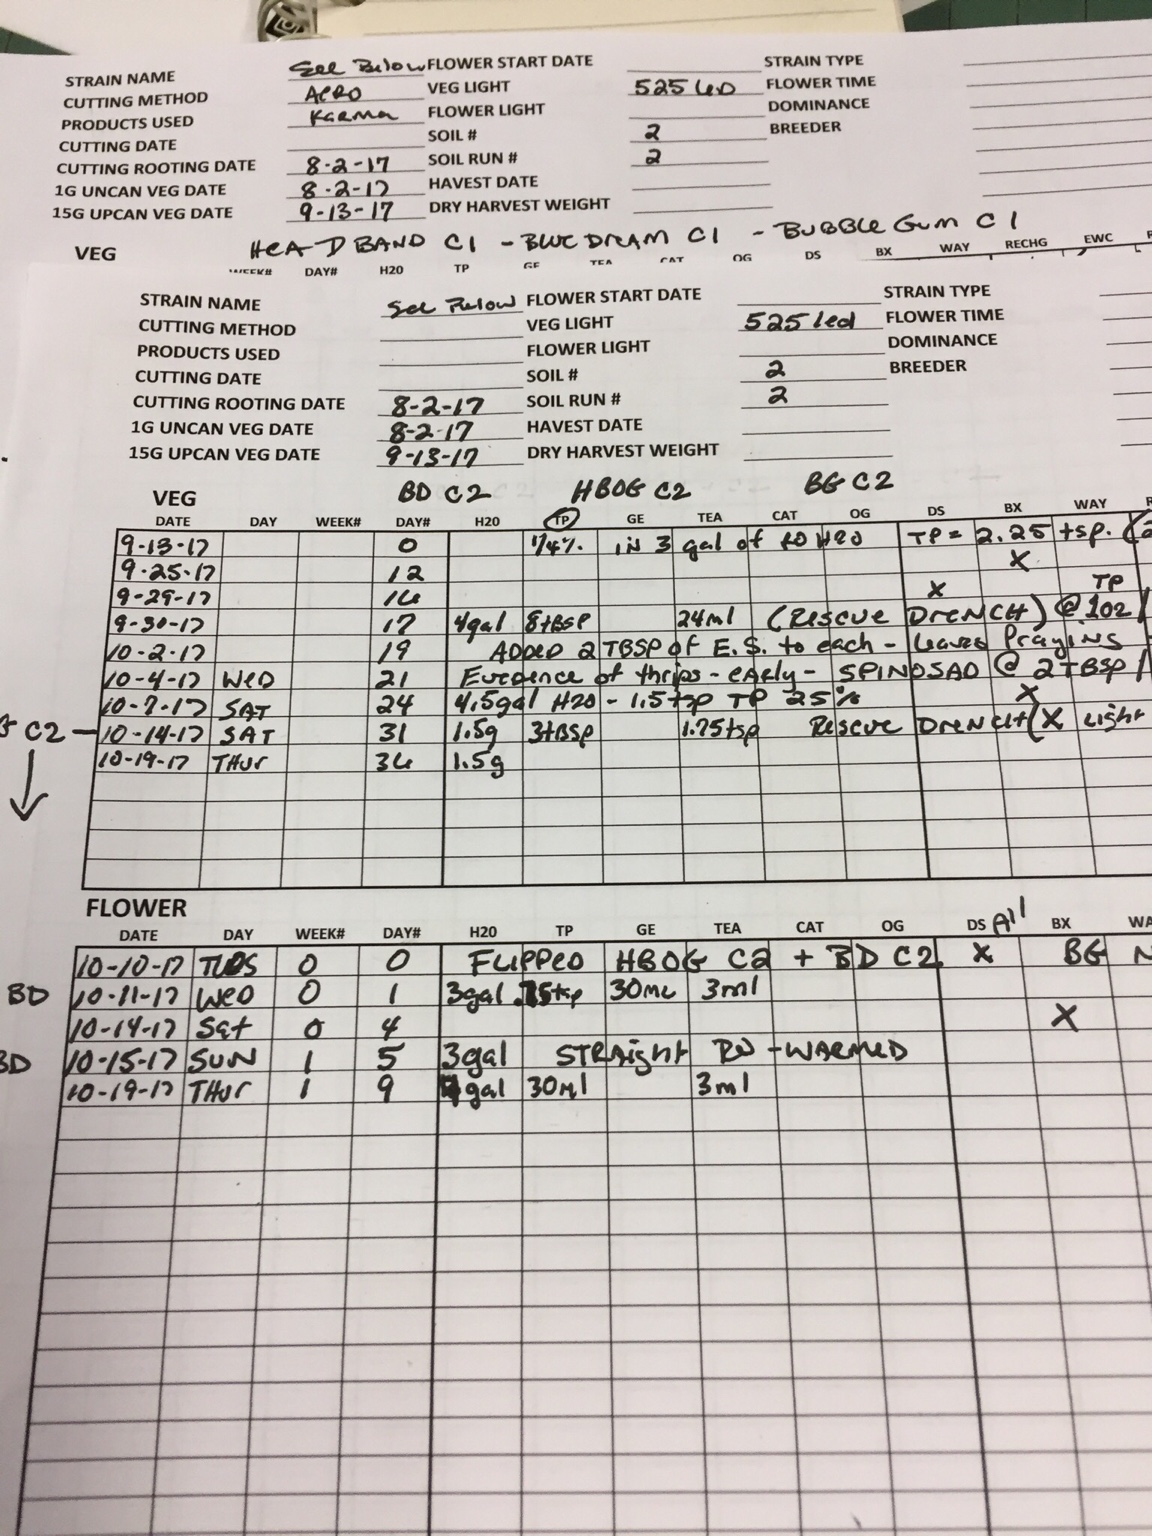 STRAIN NAME See Below FLOWER START DATE STRAIN TYPE
CUTTING METHOD AERO VEG LIGHT 525 LED FLOWER TIME
PRODUCTS USED Karma FLOWER LIGHT DOMINANCE
CUTTING DATE SOIL # 2 BREEDER
CUTTING ROOTING DATE 8-2-17 SOIL RUN # 2
1G UNCAN VEG DATE 8-2-17 HAVEST DATE
15G UPCAN VEG DATE 9-13-17 DRY HARVEST WEIGHT
VEG HEADBAND C1 - BLUE DREAM C1 - BUBBLE GUM C1
WEEK# DAY# H20 TP GE TEA CAT OG DS BX WAY RECHG EWC
STRAIN NAME See Below FLOWER START DATE STRAIN TYPE
CUTTING METHOD VEG LIGHT 525 led FLOWER TIME
PRODUCTS USED FLOWER LIGHT DOMINANCE
CUTTING DATE SOIL # 2 BREEDER
CUTTING ROOTING DATE 8-2-17 SOIL RUN # 2
1G UNCAN VEG DATE 8-2-17 HAVEST DATE
15G UPCAN VEG DATE 9-13-17 DRY HARVEST WEIGHT
VEG BD C2 HBOG C2 BG C2
DATE DAY WEEK# DAY# H20 TP GE TEA CAT OG DS BX WAY
9-13-17 0 1/4%. IN 3 gal of RO H20 TP = 2.25 tsp.
9-25-17 12 X
9-29-17 16 X TP
9-30-17 17 4gal 8tBSP 24ml (Rescue DrENCH) @ 1oz/
10-2-17 19 ADDED 2 TBSP of E.S. to each - leaves Praying
10-4-17 WED 21 Evidence of thrips - early - SPINOSAD @ 2TBSP/
10-7-17 SAT 24 4.5gal H20 - 1.5tsp TP 25% X
C2 - 10-14-17 SAT 31 1.5g 3tBSP 1.75tsp Rescue DrENCH (X Light
10-19-17 THUR 36 1.5g
FLOWER
DATE DAY WEEK# DAY# H20 TP GE TEA CAT OG DS All BX
10-10-17 TUES 0 0 FLIPPED HBOG C2 + BD C2 X BG
BD 10-11-17 WED 0 1 3gal .75tsp 30ML 3ml
10-14-17 Sat 0 4 X
BD 10-15-17 SUN 1 5 3gal STRAIGHT RO - WARMED
10-19-17 THUR 1 9 gal 30ml 3ml